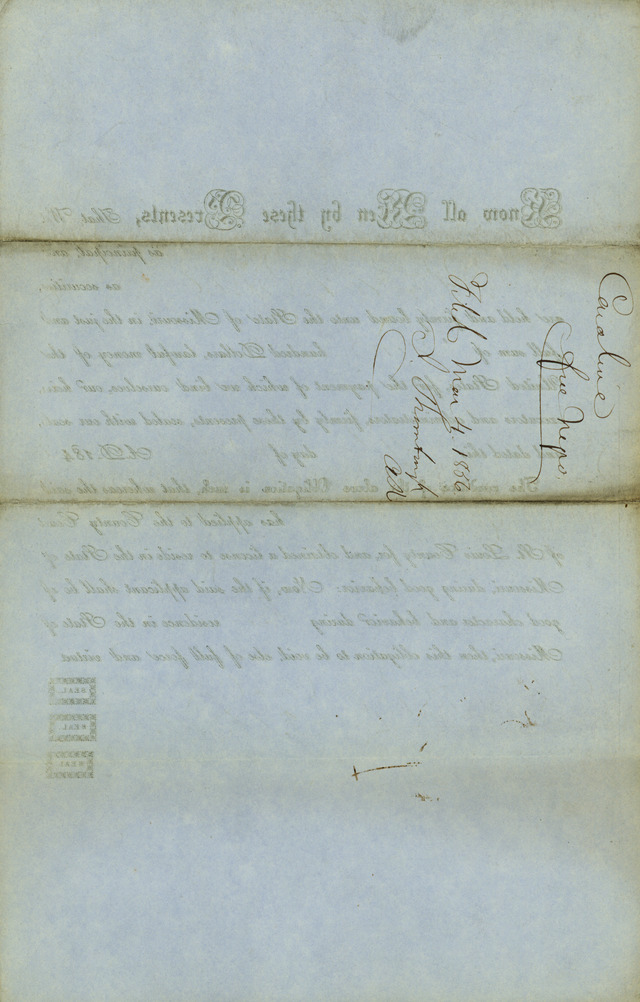 Caroline
free Negro
Filed Mar 4. 1856
S Thornburgh
Clk
Know all Men by these Presents, That We
as principal, and
as securities,
are held and firmly bound unto the State of Missouri, in the just and
full sum of hundred Dollars, lawful money of the
United States, for the payment of which we bind ourselves, our heirs,
executors and administrators, firmly by these presents, sealed with our seals,
and dated this day of A.D. 184
The condition of the above Obligation is such, that whereas the said
has applied to the County Court
of St. Louis County for, and obtained a license to reside in the State of
Missouri, during good behavior: Now, if the said applicant shall be of
good character and behavior during residence in the State of
Missouri, then this obligation to be void, else of full force and virtue.
SEAL
SEAL
SEAL